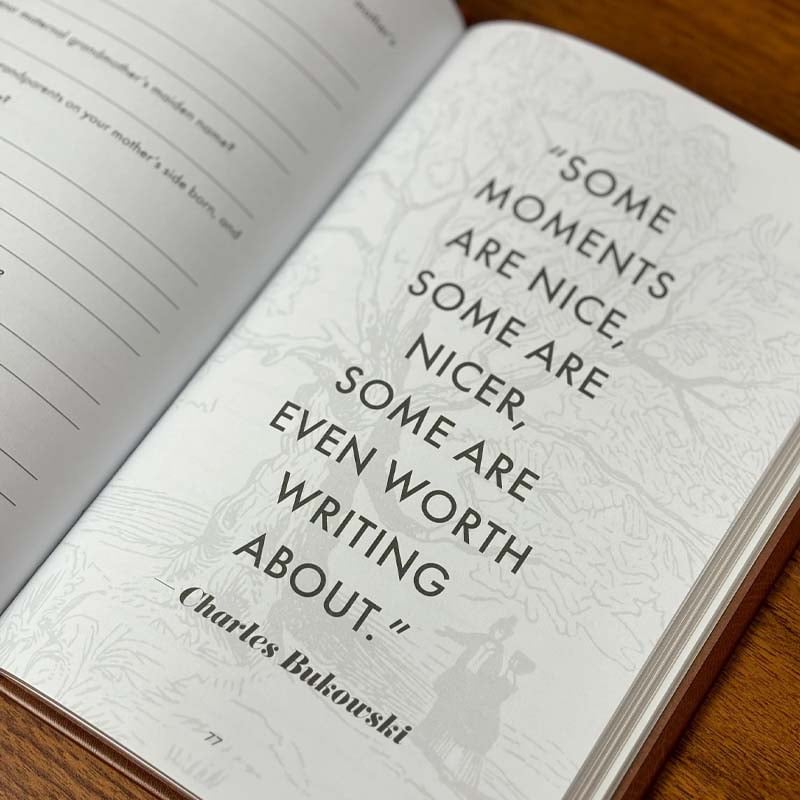 mother's
your maternal grandmother's maiden name?
grandparents on your mother's side born, and
"SOME
MOMENTS
ARE NICE,
SOME ARE
NICER,
SOME ARE
EVEN WORTH
WRITING
ABOUT."
— Charles Bukowski
77